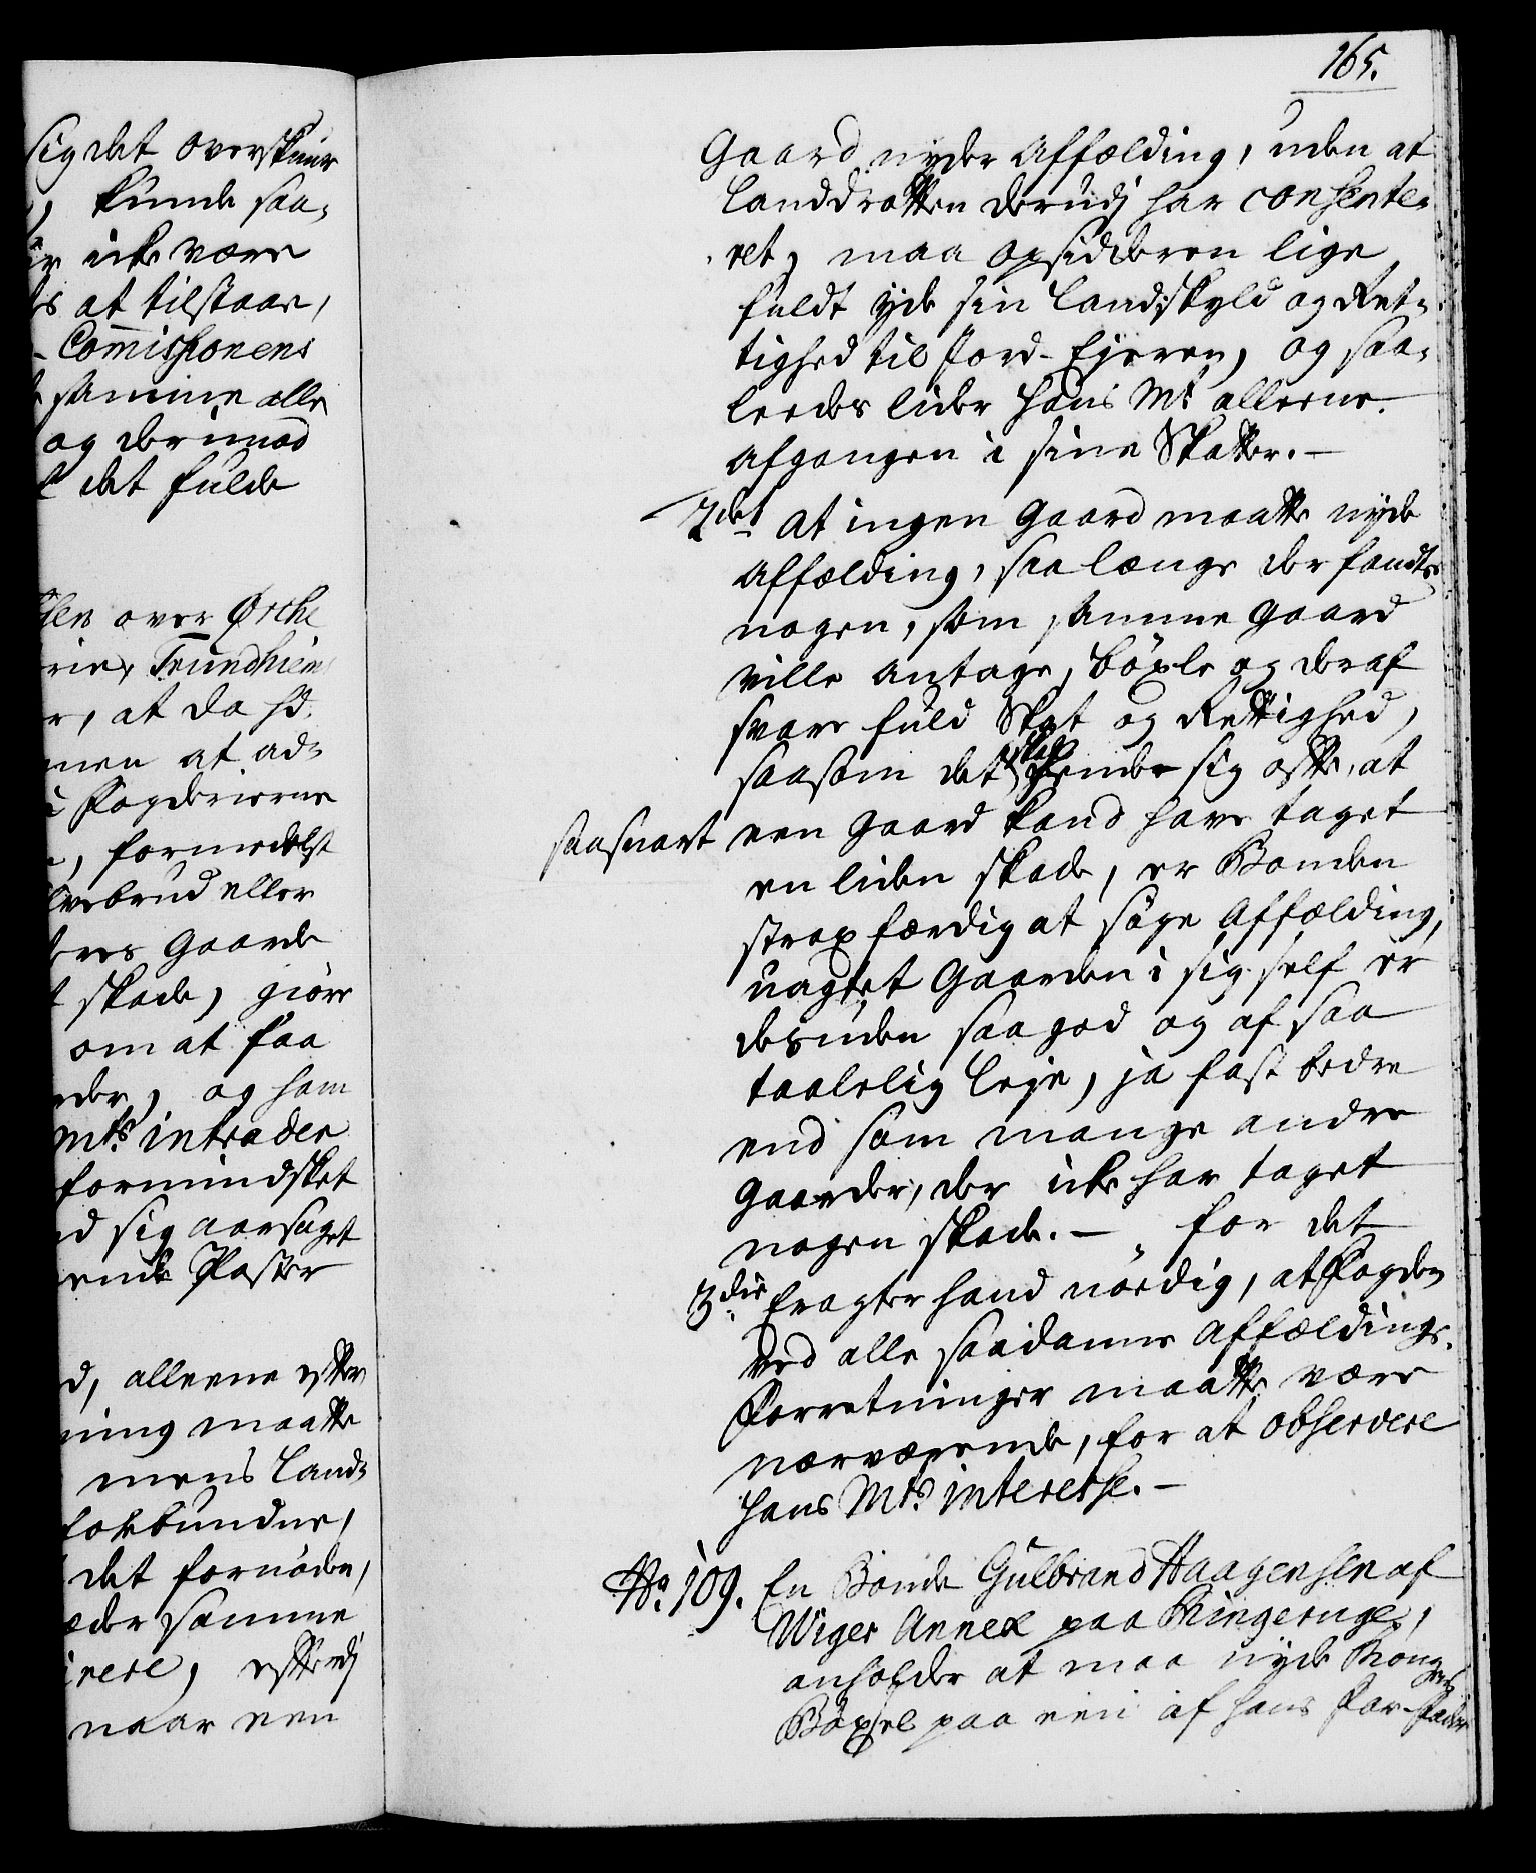 sig det overskuur
kunde saa-
icke være
at tilstaae,
Commissionens
samme alle
og derimod
det fulde
over Ørche
Trundhiem
, at da hd.
at ad-
Fogderierne
, formedelst
brud eller
Gaarde
skade, giøre
om at faa
, og som
Mts. intrader
formindsket
sig aarsaget
Poster
, alleene efter
maatte
mens Land-
det fornøden,
samme
, efterdj
naar een
165.
Gaard nyder Affælding, uden at
Landdrotten derudj har consente-
ret, maa opsidderen lige
fuldt yde sin Landskyld og Ret-
tighed til Jord-Ejeren, og saa-
leedes lider Hans Mt. alleene
Afgangen i sine Skatter.-
2det At ingen Gaard maatte nyde
Affælding, saa længe der fandtes
nogen, som samme Gaard
ville antage, böxle og deraf
svare fuld Skat og Rettighed,
saasom det skal hende sig ofte, at
saasnart een Gaard kand have taget
en liden skade, er Bonden
strax færdig at søge Affælding,
uagtet Gaarden i sig self er
desuden saa god og af saa
taalelig leje, ja fast bedre
end som mange andre
Gaarder, der icke har taget
nogen skade.- for det
3die Eragter hand nødig, at Fogden
ved alle saadanne Affældings-
Forretninger maatte være
nærværende, for at observere
Hans Mts. interesse.-
No. 109. En Bonde Gulbrand Haagensen af
Wiger Annex paa Ringeruge,
anholder at maa nyde Kongens
Böxsel paa een af hans For-Fædre